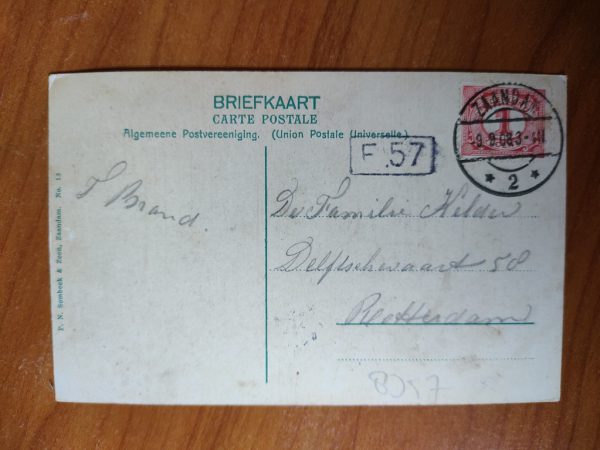 BRIEFKAART
CARTE POSTALE
Algemeene Postvereeniging. (Union Postale Universelle.)
ZAANDAM
1
2
F.57
Brand.
De Familie Helder
Delftschevaart 58
Rotterdam
P. N. Sombeek & Zoon, Zaandam. No. 13